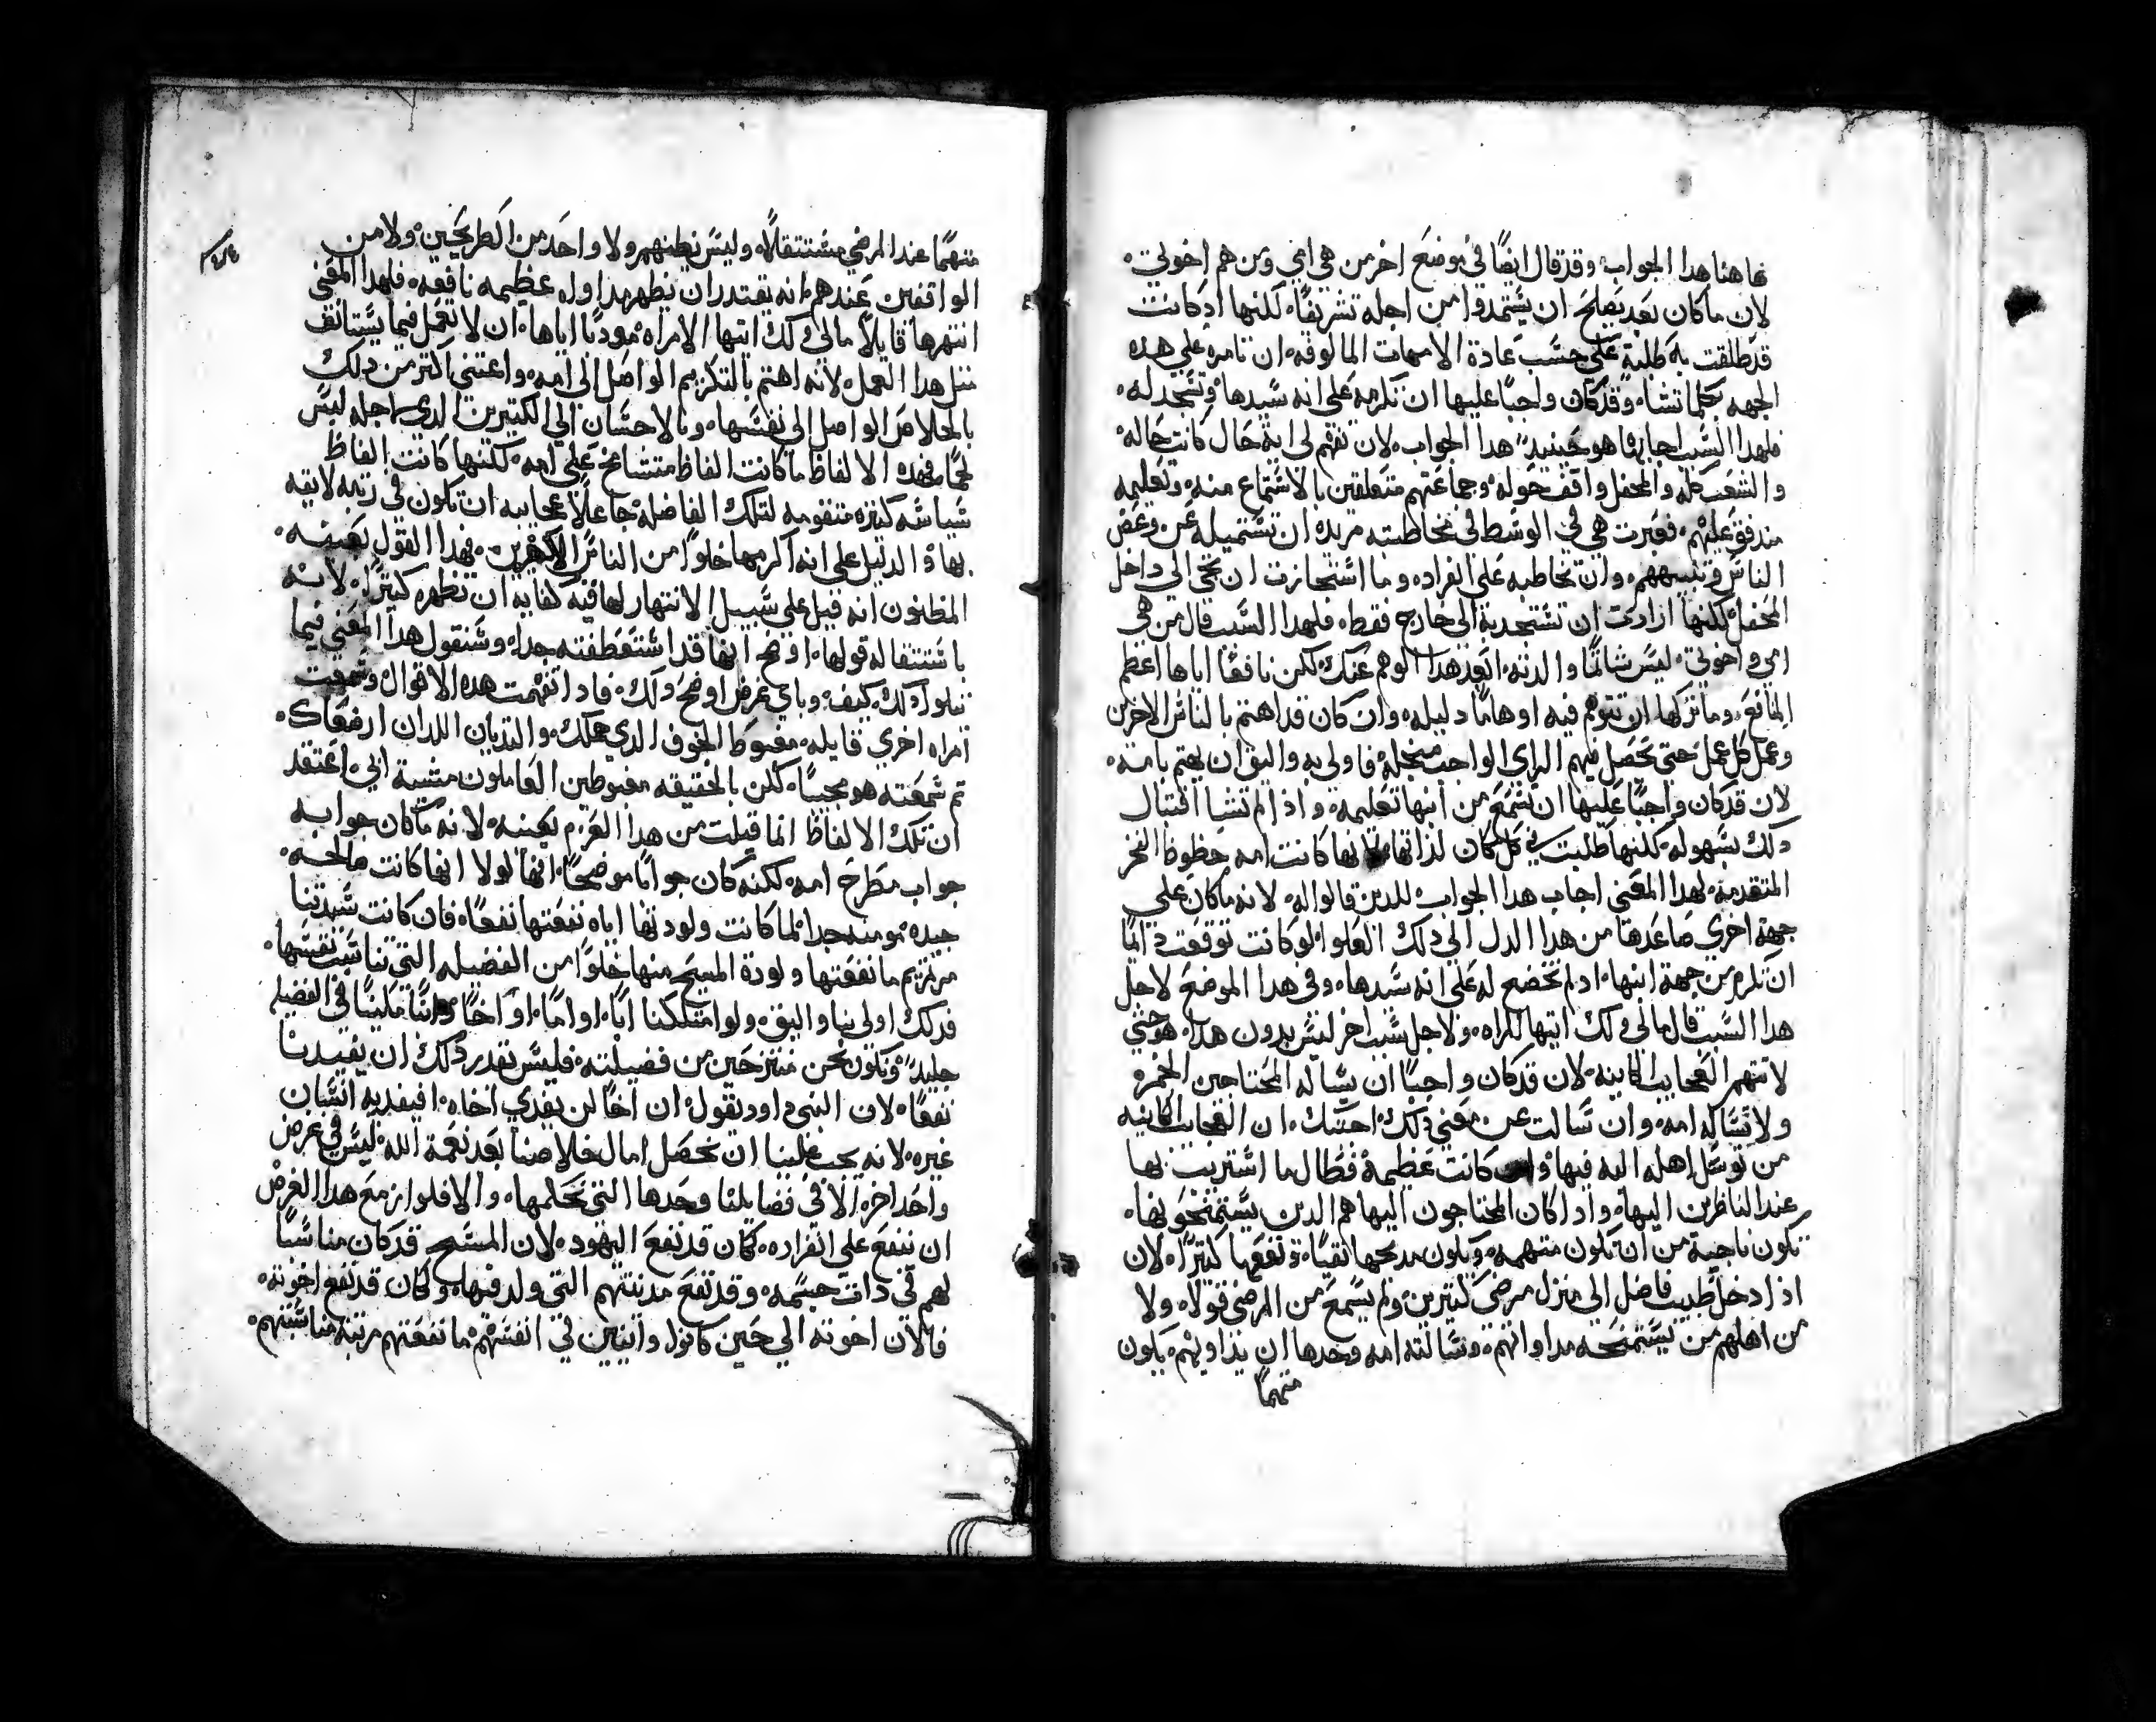 هاهنا هدا الجواب وقد قال ايضًا في موضع اخر من هي امي ومن هم اخوتي
لان ما كان بعد يصلح ان يستمدوا من اجله تشريفًا لكنها اد كانت
قد طلقت به طلبة على حسب عادة الامهات المالوفه ان تامره على هده
الجهه بكلما تشاء وقد كان واجبًا عليها ان تكرمه على انه سيدها وتسجد له
فلهدا السبب اجابها هو حينيدٍ هدا الجواب لان تفهم لي اية حال كانت حاله
والشعب كله والمحفل واقف حوله وجماعتهم متعلقين بالاستماع منه وتعليمه
مندفق عليهم فعبرت هي في الوسط في مخاطبته مريده ان تستميله عن وعض
الناس وتنبيههم وان تخاطبه على انفراده وما استجازت ان تجي الي داخل
المحفل لكنها ارادت ان تستجدبه الى خارج فقط فلهدا السبب قال من هي
امي واخوتي ليس شاتمًا والدته ابعد هدا الوهم عنك لكن نافعًا اياها اعظم
المنافع وما تركها ان تتوهم فيه اوهامًا دليله وان كان قد اهتم بالناس الاخرين
وعمل كل عمل حتى تحصل فيهم الراي الواجب من اجله فاولى به واليق ان يهتم بامه
لان قد كان واجبًا عليها ان تسمع من ابنها تعليمه واذ لم تشا اقتبال
دلك بسهوله لكنها طلبت في كل مكان لذاتها لانها كانت امه حظوظ الفخر
المتقدمه لهدا المعنى اجاب هدا الجواب للدين قالوا له لانه ما كان على
جهة اخري صاعدها من هدا الدل الى دلك العلو لو كانت توقعت دايمًا
ان تكرم من جهة ابنها اد لم تخضع له على انه سيدها وفي هدا الموضع لاجل
هدا السبب قال ما لي ولك ايتها المراه ولاجل سبب اخر ليس بدون هدا هو حتي
لا تتهم العجايب الكاينه لان قد كان واجبًا ان يساله المحتاجين الخمره
ولا تساله امه وان سالت عن معني دلك احسبك ان العجايب الكاينه
من توسل اهله اليه فيها وان كانت عظيمة فطال ما اشتربت بها
عند الناظرين اليها واد اكان المحتاجون اليها هم الدين يستمنحونها
تكون ناجية من ان تكون متهمه ويكون مدحها نقيًا ونفعها كتيرًا لان
اذا دخل طبيب فاضل الى منزل مرضى كتيرين ولم يسمع من المرضى قولاً ولا
من اهلهم من يستمنحه مداواتهم وسالته امه وحدها ان يداويهم يكون
متهمًا
متهمًا عند المرضي مستتقلاً وليس يظنهم ولا واحد من الطريحين ولا من
الواقفين عندهم انه يقتدر ان يظهر مداواه عظيمه نافعه فلهدا المعنى
انتهرها قايلاً ما لي ولك ايتها الامراه مودبًا اياها ان لا تعمل فيما يستانف
متل هدا العمل لانه اهتم بالتكريم الواصل الى امه واعتنى اكتر من دلك
بالخلاص الواصل الى نفسها وبالاحسان الي الكتيرين الدي من اجله لبس
لحمًا فهده الالفاظ ما كانت الفاظ متشامخ علي امه لكنها كانت الفاظ
سياسه كتيره متقومه لتلك الفاضله جاعلاً عجايبه ان تكون في رتبه لايقه
بها والدليل على انه اكرمها خلوًا من الناس الاخرين فهدا القول بعينه
المظنون انه قيل على سبيل الانتهار لها فيه كفايه ان تظهره كتيرًا لانه
باستتقاله قولها اوضح انها قد استعطفته جدًا وسنقول هدا المعني فيما
يتلو دلك كيف وباي غرض اوضح دلك فادا تفهمت هده الاقوال وسمعت
امراه اخري قايله مغبوط الجوف الدي حملك والتديان اللدان ارضعاك
تم سمعته هو مجيبًا لكن بالحقيقه مغبوطين العاملون مشية ابي اعتقد
ان تلك الالفاظ انما قيلت من هدا العزم بعينه لانه ما كان جوابه
جواب مطرح امه لكنه كان جوابًا موضحًا انها لولا انها كانت صالحه
جيده مومنه جدًا لما كانت ولودتها اياه نفعتها نفعًا فان كانت سيدتنا
مرتمريم ما نفعتها ولودة المسيح منها خلوًا من الفضيله التي تناسب نفسها
فدلك اولى بنا واليق ولو امتلكنا ابًا او امًا او اخًا وابنًا مكينًا في الفضيله
جليدًا ونكون نحن منتزحين من فضيلته فليس نقدر دلك ان يفيدنا
نفعًا لان النبي داود يقول ان اخًا لن يفدي اخاه افيفديه انسان
غيره لانه يجب علينا ان نحصل امال خلاصنا بعد نعمة الله ليس في غرض
واحد اخر الا في فضايلنا وحدها التي نحكمها والا فلو ازمع هدا الغرض
ان ينفع على انفراده كمان قد نفع اليهود لان المسيح قد كان مناسبًا
لهم في دات جسمه وقد نفع مدينتهم التي ولد فيها وكان قد نفع اخوته
فالان اخوته الي حين كانوا وانيين في انفسهم ما نفعتهم مرتبة مناسبتهم